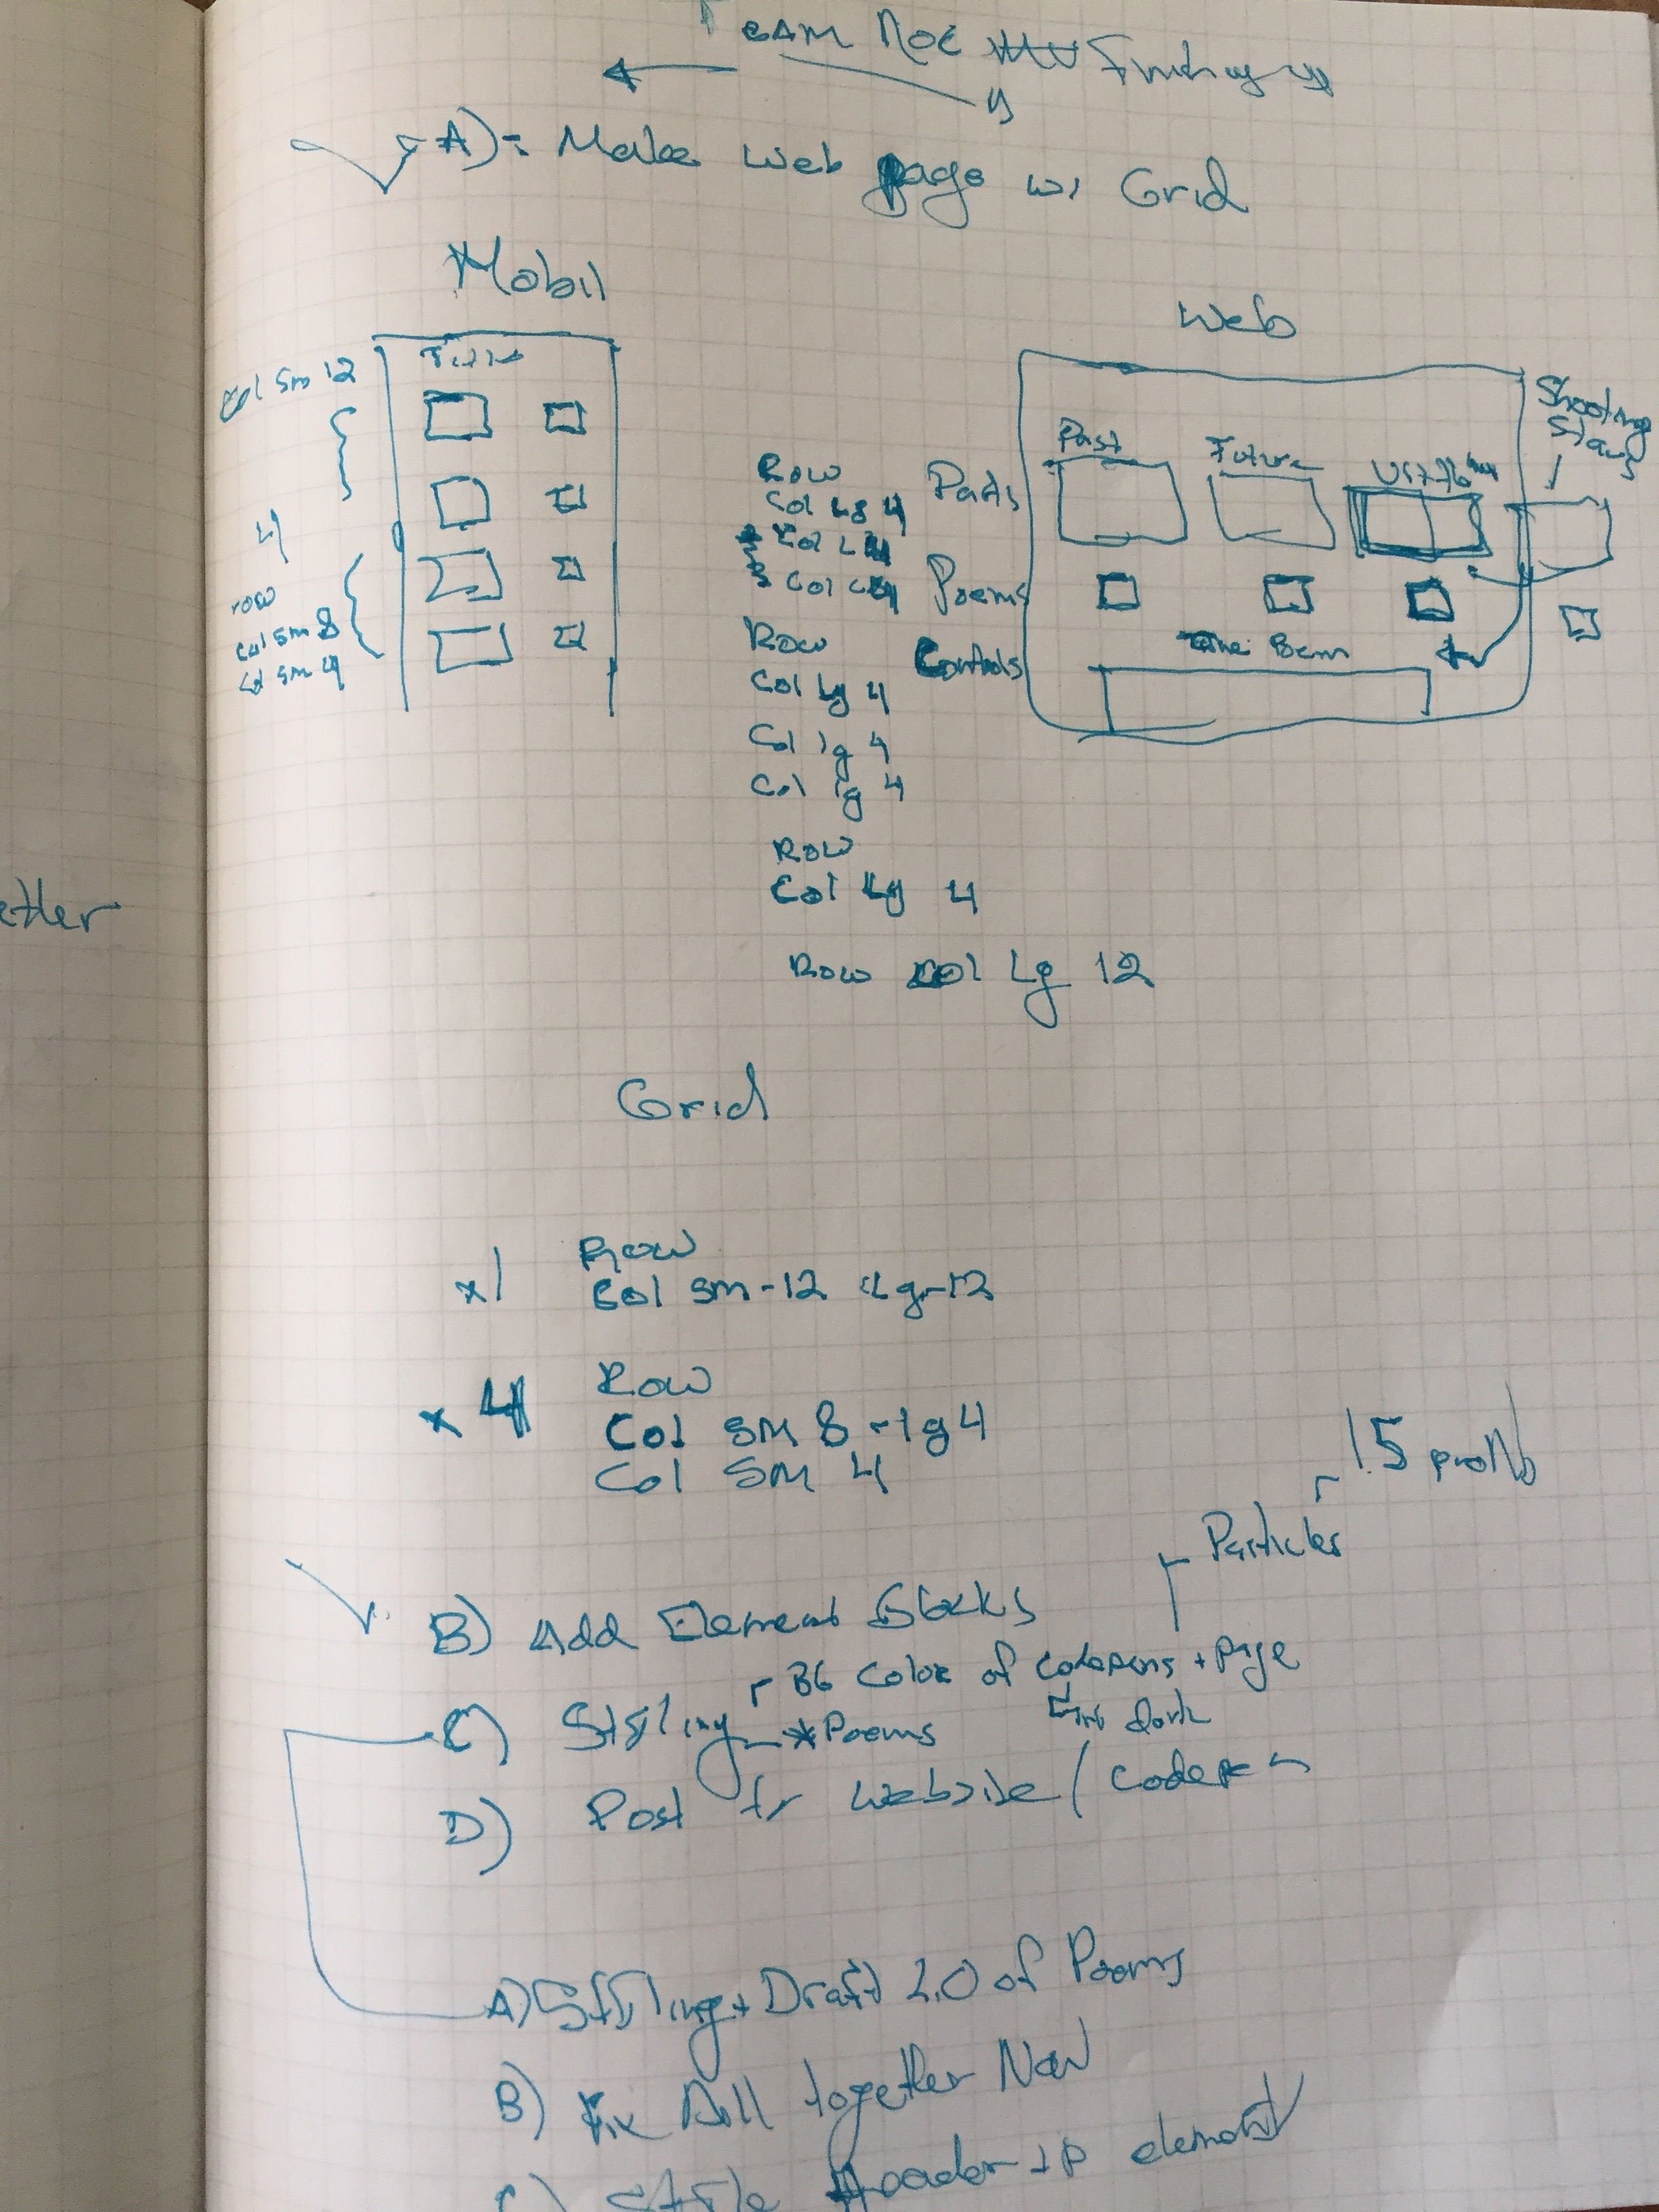 Team
A): Make web page w/ Grid
Mobil
Web
Col Sm 12
Title
Shooting
Stars
Past
Future
Row
Col Lg 4
Col L 4
Col Lg 4
Poems
4
row
Col Sm 8
Col Sm 4
Row
Col Lg 4
Col lg 4
Col lg 4
Controls
Row
Col Lg 4
Row Col Lg 12
etler
Grid
x1
Row
Col Sm-12 Lg-12
x 4
Row
Col SM 8 -lg4
Col SM 4
1.5
Particles
B) Add Element Blocks
C) Styling
BG Color of Codepens + page
* Poems
dark
D) Post to website / Codepen
A) Styling + Draft 2.0 of Poems
B) Fix All together Now
C) Style Header + P element